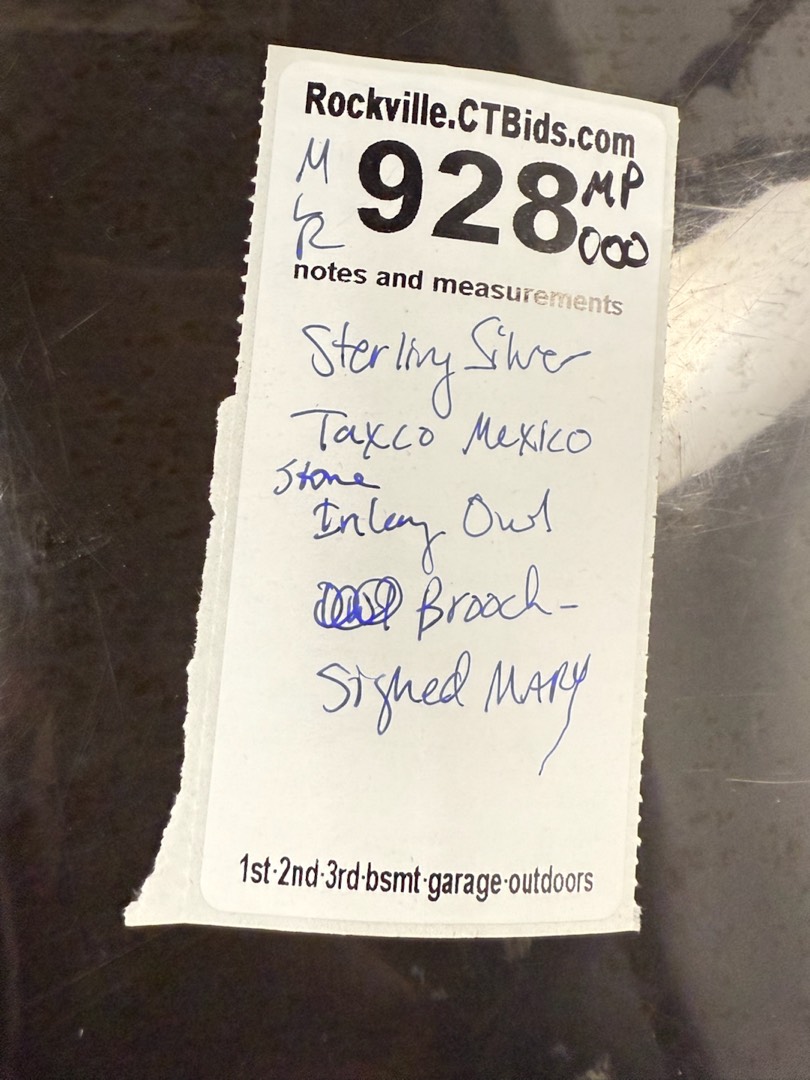 Rockville.CTBids.com
M 928 MP
LR 000
notes and measurements
Sterling Silver
Taxco Mexico
Stone
Inlay Owl
Brooch-
Signed MARY
1st·2nd·3rd·bsmt·garage·outdoors